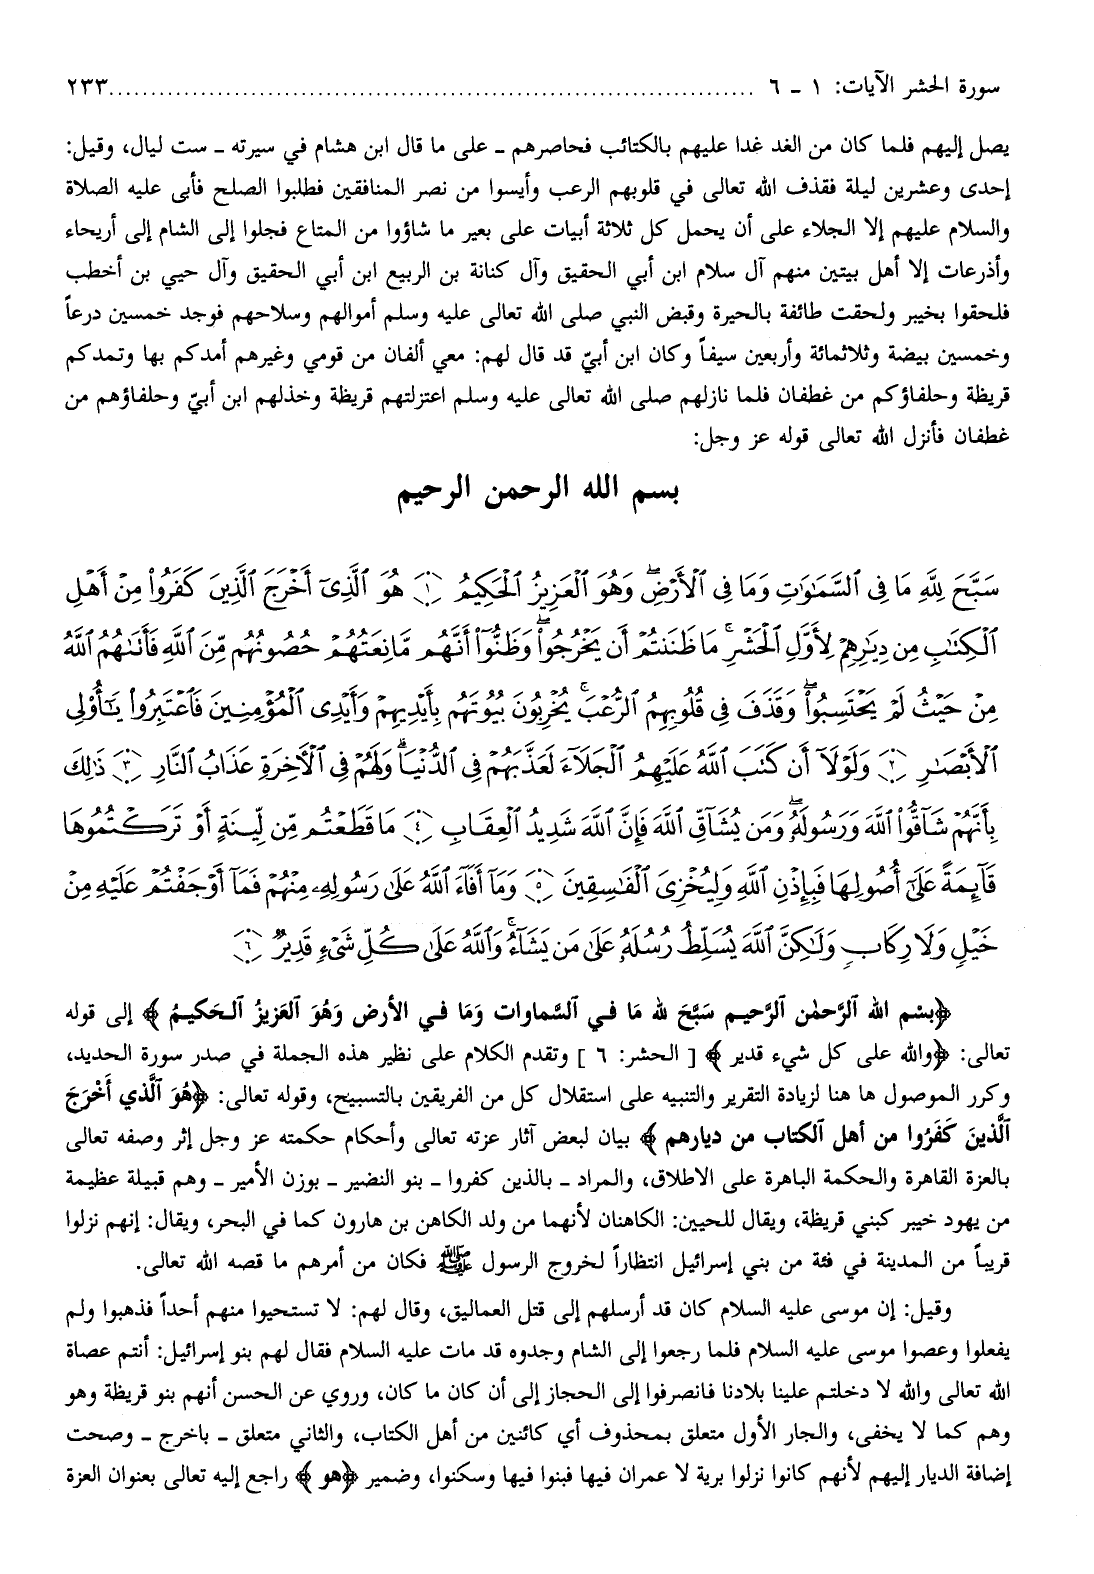 سورة الحشر الآيات: ١ ـ ٦ ............................................................................... ٢٣٣
يصل إليهم فلما كان من الغد غدا عليهم بالكتائب فحاصرهم ـ على ما قال ابن هشام في سيرته ـ ست ليال، وقيل:
إحدى وعشرين ليلة فقذف الله تعالى في قلوبهم الرعب وأيسوا من نصر المنافقين فطلبوا الصلح فأبى عليه الصلاة
والسلام عليهم إلا الجلاء على أن يحمل كل ثلاثة أبيات على بعير ما شاؤوا من المتاع فجلوا إلى الشام إلى أريحاء
وأذرعات إلا أهل بيتين منهم آل سلام ابن أبي الحقيق وآل كنانة بن الربيع ابن أبي الحقيق وآل حيي بن أخطب
فلحقوا بخيبر ولحقت طائفة بالحيرة وقبض النبي صلى الله تعالى عليه وسلم أموالهم وسلاحهم فوجد خمسين درعاً
وخمسين بيضة وثلاثمائة وأربعين سيفاً وكان ابن أبيّ قد قال لهم: معي ألفان من قومي وغيرهم أمدكم بها وتمدكم
قريظة وحلفاؤكم من غطفان فلما نازلهم صلى الله تعالى عليه وسلم اعتزلتهم قريظة وخذلهم ابن أبيّ وحلفاؤهم من
غطفان فأنزل الله تعالى قوله عز وجل:
بسم الله الرحمن الرحيم
سَبَّحَ لِلَّهِ مَا فِى ٱلسَّمَـٰوَٰتِ وَمَا فِى ٱلْأَرْضِ ۖ وَهُوَ ٱلْعَزِيزُ ٱلْحَكِيمُ ﴿١﴾ هُوَ ٱلَّذِىٓ أَخْرَجَ ٱلَّذِينَ كَفَرُوا۟ مِنْ أَهْلِ
ٱلْكِتَـٰبِ مِن دِيَـٰرِهِمْ لِأَوَّلِ ٱلْحَشْرِ ۚ مَا ظَنَنتُمْ أَن يَخْرُجُوا۟ ۖ وَظَنُّوٓا۟ أَنَّهُم مَّانِعَتُهُمْ حُصُونُهُم مِّنَ ٱللَّهِ فَأَتَىٰهُمُ ٱللَّهُ
مِنْ حَيْثُ لَمْ يَحْتَسِبُوا۟ ۖ وَقَذَفَ فِى قُلُوبِهِمُ ٱلرُّعْبَ ۚ يُخْرِبُونَ بُيُوتَهُم بِأَيْدِيهِمْ وَأَيْدِى ٱلْمُؤْمِنِينَ فَٱعْتَبِرُوا۟ يَـٰٓأُو۟لِى
ٱلْأَبْصَـٰرِ ﴿٢﴾ وَلَوْلَآ أَن كَتَبَ ٱللَّهُ عَلَيْهِمُ ٱلْجَلَآءَ لَعَذَّبَهُمْ فِى ٱلدُّنْيَا ۖ وَلَهُمْ فِى ٱلْـَٔاخِرَةِ عَذَابُ ٱلنَّارِ ﴿٣﴾ ذَٰلِكَ
بِأَنَّهُمْ شَآقُّوا۟ ٱللَّهَ وَرَسُولَهُۥ ۖ وَمَن يُشَآقِّ ٱللَّهَ فَإِنَّ ٱللَّهَ شَدِيدُ ٱلْعِقَابِ ﴿٤﴾ مَا قَطَعْتُم مِّن لِّينَةٍ أَوْ تَرَكْتُمُوهَا
قَآئِمَةً عَلَىٰٓ أُصُولِهَا فَبِإِذْنِ ٱللَّهِ وَلِيُخْزِىَ ٱلْفَـٰسِقِينَ ﴿٥﴾ وَمَآ أَفَآءَ ٱللَّهُ عَلَىٰ رَسُولِهِۦ مِنْهُمْ فَمَآ أَوْجَفْتُمْ عَلَيْهِ مِنْ
خَيْلٍ وَلَا رِكَابٍ وَلَـٰكِنَّ ٱللَّهَ يُسَلِّطُ رُسُلَهُۥ عَلَىٰ مَن يَشَآءُ ۚ وَٱللَّهُ عَلَىٰ كُلِّ شَىْءٍ قَدِيرٌ ﴿٦﴾
﴿بِسْمِ الله الرَّحْمٰنِ الرَّحِيم سَبَّحَ لله مَا فـي السَّماوات وَمَا فـي الأرض وَهُوَ العَزيزُ الـحَكيمُ﴾ إلى قوله
تعالى: ﴿والله على كل شيء قدير﴾ [ الحشر: ٦ ] وتقدم الكلام على نظير هذه الجملة في صدر سورة الحديد،
وكرر الموصول ها هنا لزيادة التقرير والتنبيه على استقلال كل من الفريقين بالتسبيح، وقوله تعالى: ﴿هُوَ الَّذي أَخْرَجَ
الَّذينَ كَفَرُوا من أهل الكتاب من ديارهم﴾ بيان لبعض آثار عزته تعالى وأحكام حكمته عز وجل إثر وصفه تعالى
بالعزة القاهرة والحكمة الباهرة على الاطلاق، والمراد ـ بالذين كفروا ـ بنو النضير ـ بوزن الأمير ـ وهم قبيلة عظيمة
من يهود خيبر كبني قريظة، ويقال للحيين: الكاهنان لأنهما من ولد الكاهن بن هارون كما في البحر، ويقال: إنهم نزلوا
قريباً من المدينة في فئة من بني إسرائيل انتظاراً لخروج الرسول ﷺ فكان من أمرهم ما قصه الله تعالى.
وقيل: إن موسى عليه السلام كان قد أرسلهم إلى قتل العماليق، وقال لهم: لا تستحيوا منهم أحداً فذهبوا ولم
يفعلوا وعصوا موسى عليه السلام فلما رجعوا إلى الشام وجدوه قد مات عليه السلام فقال لهم بنو إسرائيل: أنتم عصاة
الله تعالى والله لا دخلتم علينا بلادنا فانصرفوا إلى الحجاز إلى أن كان ما كان، وروي عن الحسن أنهم بنو قريظة وهو
وهم كما لا يخفى، والجار الأول متعلق بمحذوف أي كائنين من أهل الكتاب، والثاني متعلق ـ باخرج ـ وصحت
إضافة الديار إليهم لأنهم كانوا نزلوا برية لا عمران فيها فبنوا فيها وسكنوا، وضمير ﴿هو﴾ راجع إليه تعالى بعنوان العزة